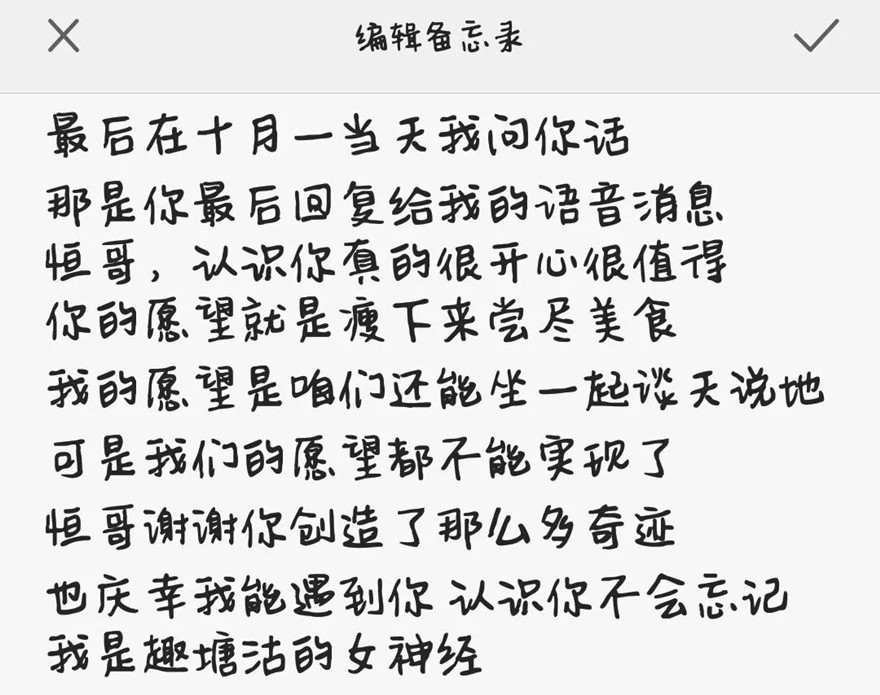 编辑备忘录
最后在十月一当天我问你话
那是你最后回复给我的语音消息
恒哥，认识你真的很开心很值得
你的愿望就是瘦下来尝尽美食
我的愿望是咱们还能坐一起谈天说地
可是我们的愿望都不能实现了
恒哥谢谢你创造了那么多奇迹
也庆幸我能遇到你 认识你不会忘记
我是趣塘沽的女神经